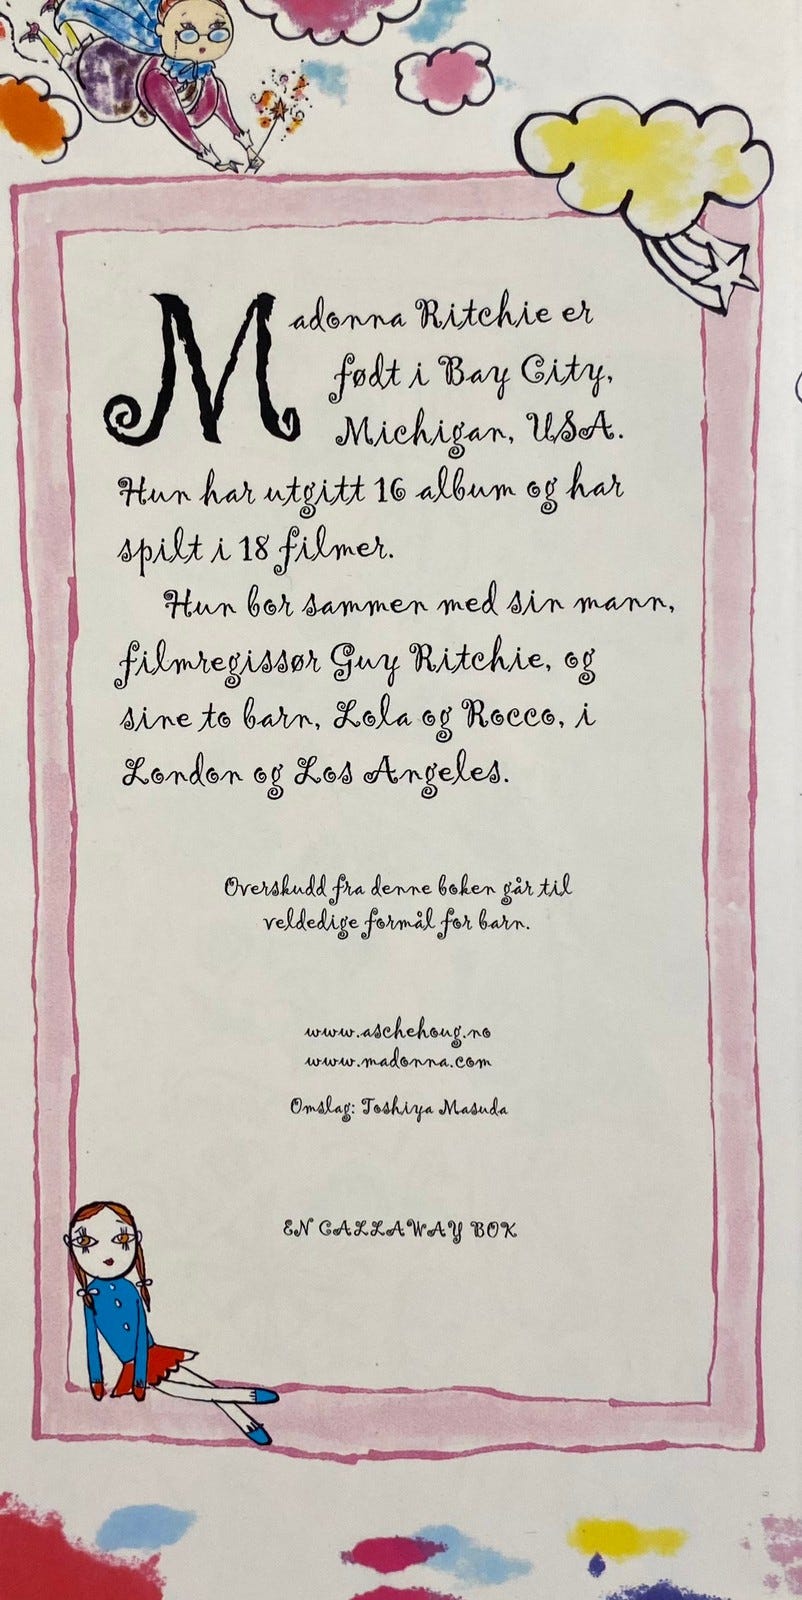 Madonna Ritchie er
født i Bay City,
Michigan, USA.
Hun har utgitt 16 album og har
spilt i 18 filmer.
Hun bor sammen med sin mann,
filmregissør Guy Ritchie, og
sine to barn, Lola og Rocco, i
London og Los Angeles.
Overskudd fra denne boken går til
veldedige formål for barn.
www.aschehoug.no
www.madonna.com
Omslag: Toshiya Masuda
EN CALLAWAY BOK